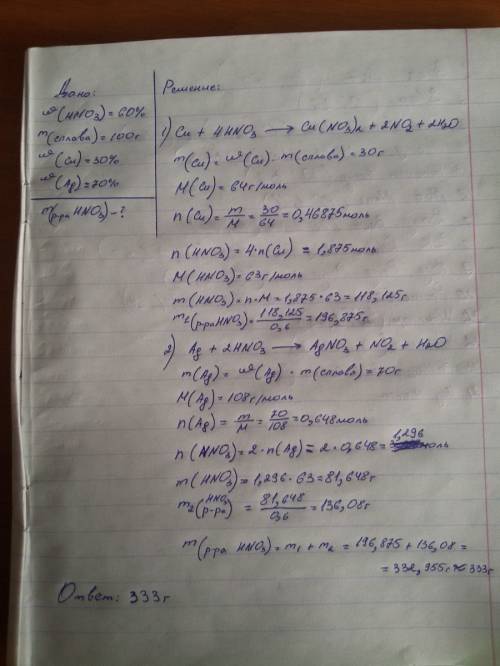 Дано:
ω(HNO3) = 60%
m(сплава) = 100г
ω(Cu) = 30%
ω(Ag) = 70%
m(р-ра HNO3) - ?
Решение:
1) Cu + 4HNO3 → Cu(NO3)2 + 2NO2 + 2H2O
m(Cu) = ω(Cu) · m(сплава) = 30г
M(Cu) = 64г/моль
n(Cu) = m/M = 30/64 = 0,46875моль
n(HNO3) = 4·n(Cu) = 1,875моль
M(HNO3) = 63г/моль
m(HNO3) = n·M = 1,875·63 = 118,125г
m1(р-ра HNO3) = 118,125/0,6 = 196,875г
2) Ag + 2HNO3 → AgNO3 + NO2 + H2O
m(Ag) = ω(Ag) · m(сплава) = 70г
M(Ag) = 108г/моль
n(Ag) = m/M = 70/108 = 0,648моль
n(HNO3) = 2·n(Ag) = 2·0,648 = 1,296 моль
m(HNO3) = 1,296·63 = 81,648г
m2(р-ра HNO3) = 81,648/0,6 = 136,08г
m(р-ра HNO3) = m1 + m2 = 196,875 + 136,08 =
= 332,955г ≈ 333г
Ответ: 333г